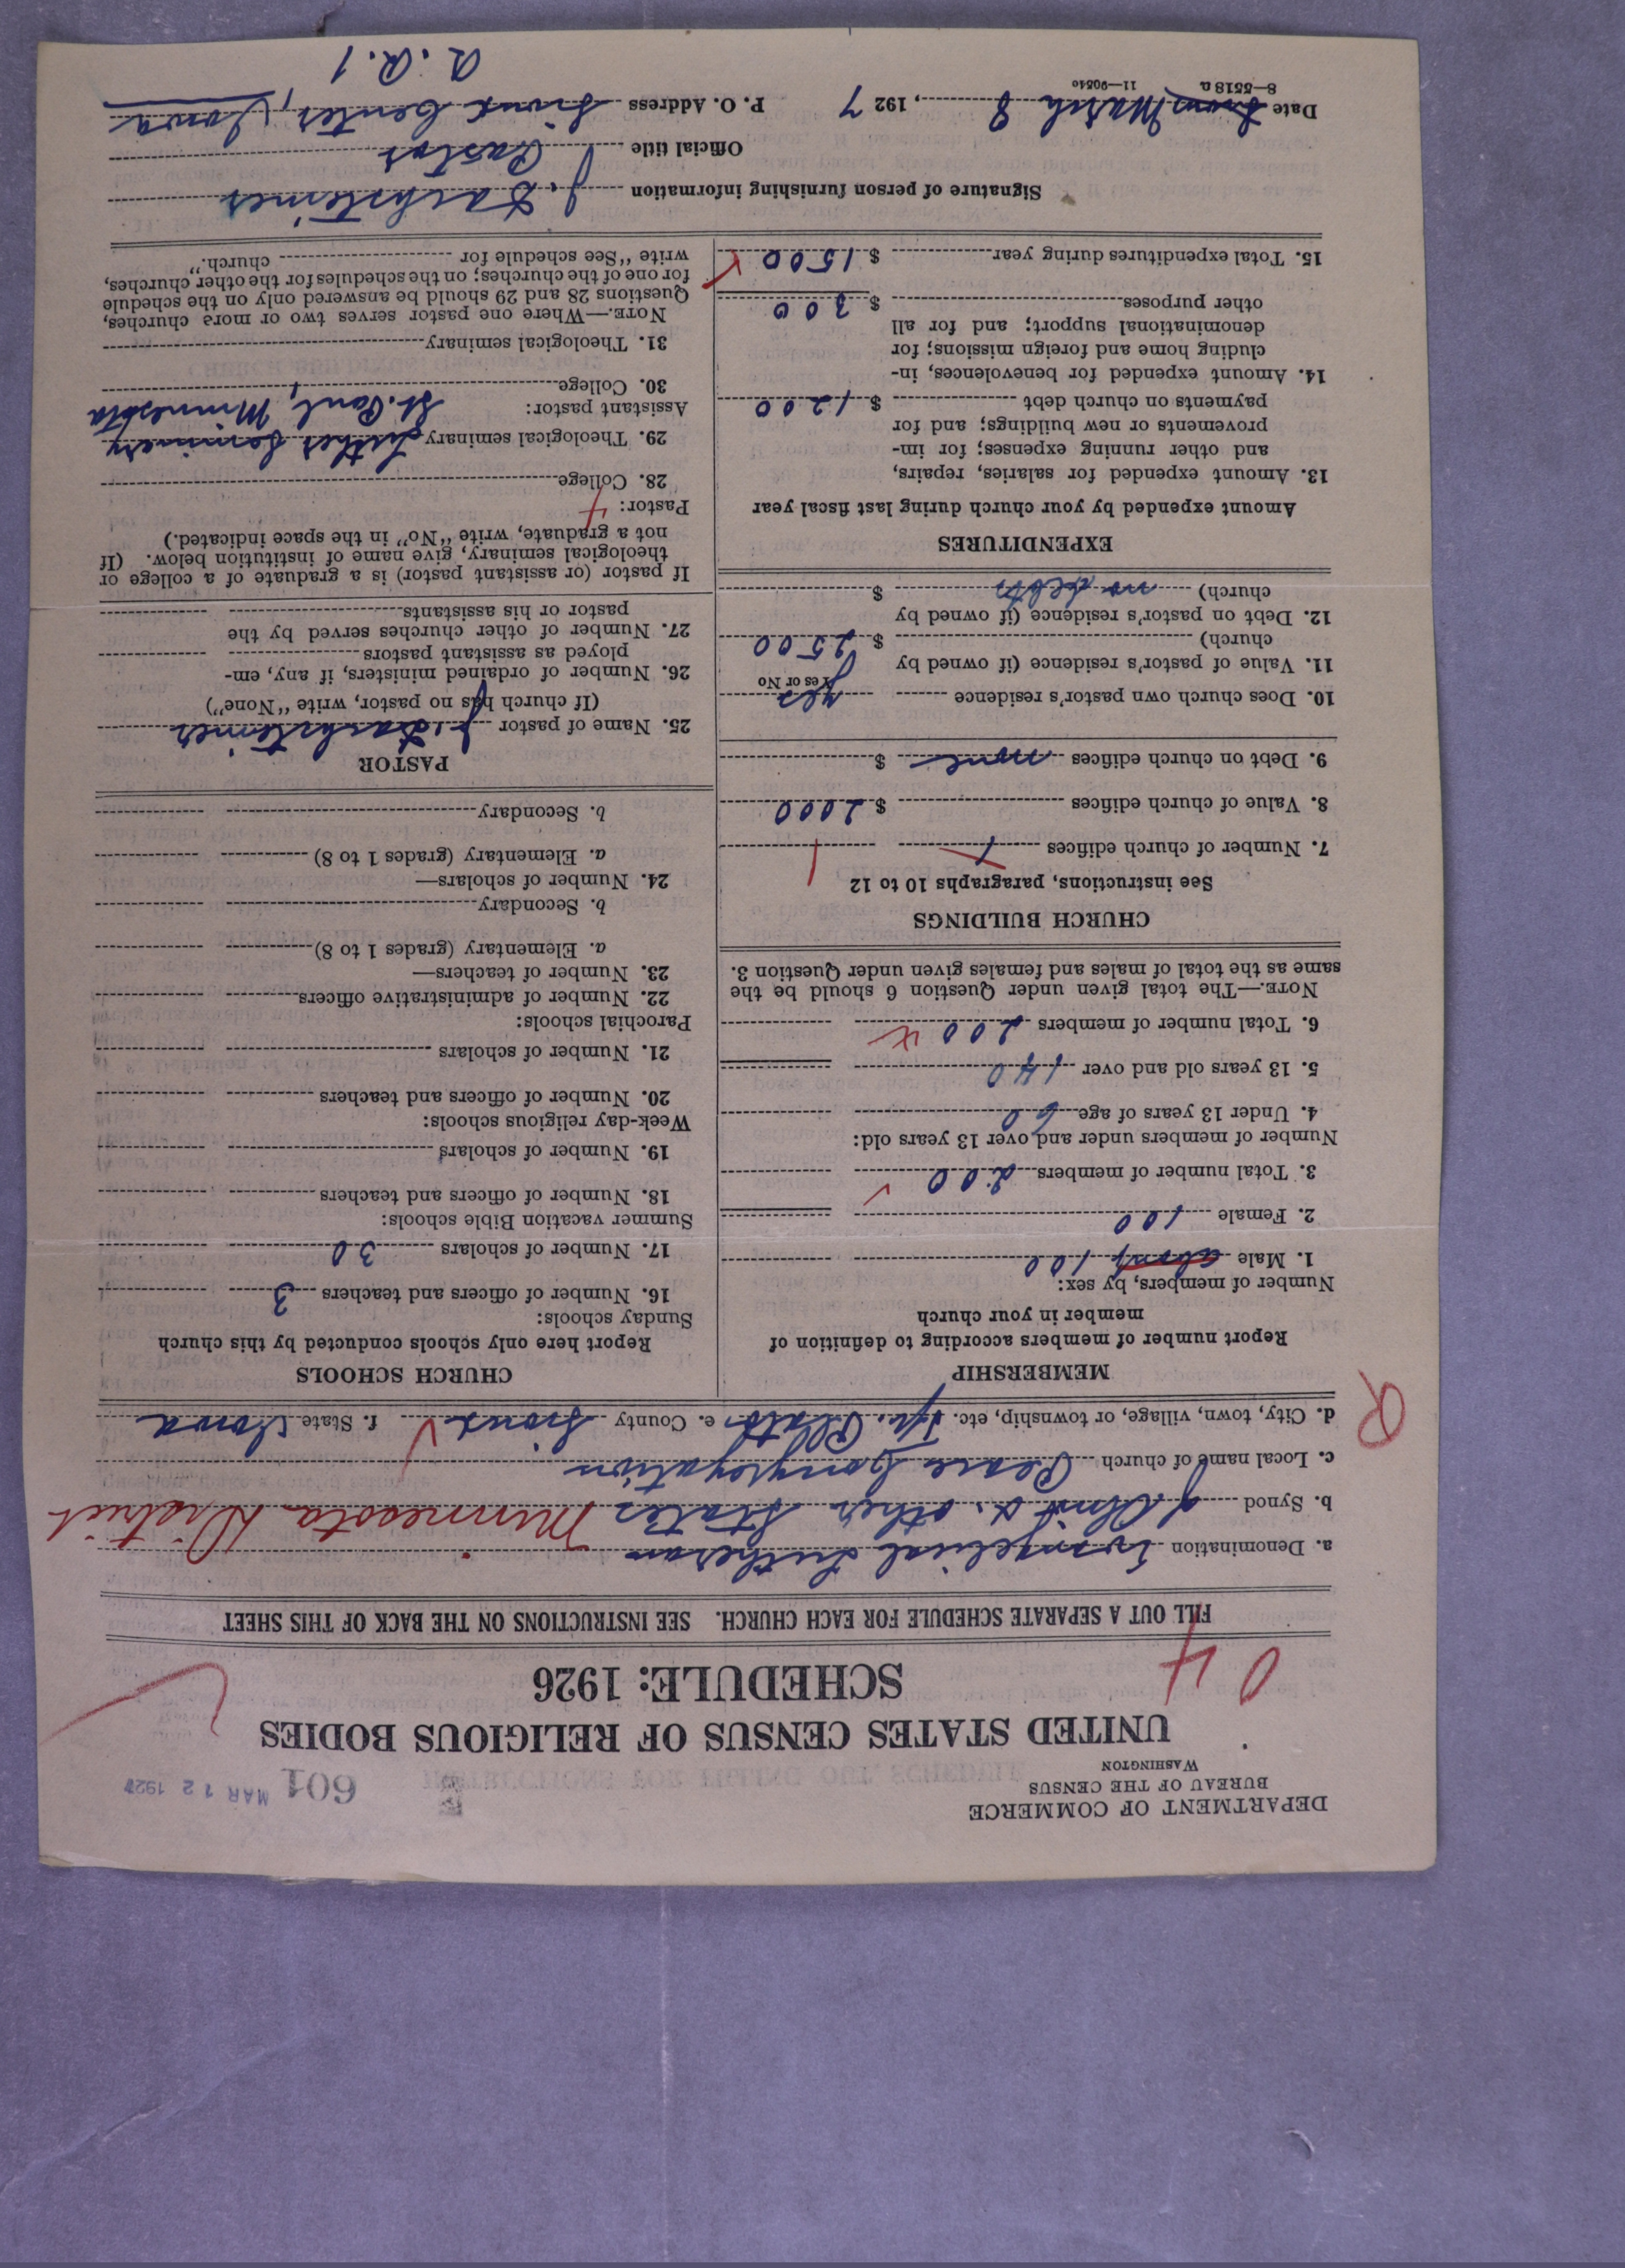 DEPARTMENT OF COMMERCE
BUREAU OF THE CENSUS
WASHINGTON
601 MAR 12 1927
UNITED STATES CENSUS OF RELIGIOUS BODIES
SCHEDULE: 1926
04
FILL OUT A SEPARATE SCHEDULE FOR EACH CHURCH. SEE INSTRUCTIONS ON THE BACK OF THIS SHEET
a. Denomination Evangelical Lutheran
b. Synod of Ohio & other States Minnesota District
c. Local name of church Peace Congregation
d. City, town, village, or township, etc. Tp. Plato e. County Sioux f. State Iowa
R
MEMBERSHIP
Report number of members according to definition of
member in your church
Number of members, by sex:
1. Male about 100
2. Female 100
3. Total number of members 200
Number of members under and over 13 years old:
4. Under 13 years of age 60
5. 13 years old and over 140
6. Total number of members 200
NOTE.—The total given under Question 6 should be the
same as the total of males and females given under Question 3.
CHURCH BUILDINGS
See instructions, paragraphs 10 to 12
7. Number of church edifices 1 1
8. Value of church edifices $ 2000
9. Debt on church edifices none $
10. Does church own pastor's residence yes
Yes or No
11. Value of pastor's residence (if owned by
church) $ 2500
12. Debt on pastor's residence (if owned by
church) no debts $
EXPENDITURES
Amount expended by your church during last fiscal year
13. Amount expended for salaries, repairs,
and other running expenses; for im-
provements or new buildings; and for
payments on church debt $ 1200
14. Amount expended for benevolences, in-
cluding home and foreign missions; for
denominational support; and for all
other purposes $ 300
15. Total expenditures during year $ 1500
CHURCH SCHOOLS
Report here only schools conducted by this church
Sunday schools:
16. Number of officers and teachers 3
17. Number of scholars 30
Summer vacation Bible schools:
18. Number of officers and teachers
19. Number of scholars
Week-day religious schools:
20. Number of officers and teachers
21. Number of scholars
Parochial schools:
22. Number of administrative officers
23. Number of teachers—
a. Elementary (grades 1 to 8)
b. Secondary
24. Number of scholars—
a. Elementary (grades 1 to 8)
b. Secondary
PASTOR
25. Name of pastor J. Dachsteiner
(If church has no pastor, write "None")
26. Number of ordained ministers, if any, em-
ployed as assistant pastors
27. Number of other churches served by the
pastor or his assistants
If pastor (or assistant pastor) is a graduate of a college or
theological seminary, give name of institution below. (If
not a graduate, write "No" in the space indicated.)
Pastor:
28. College
29. Theological seminary Luther Seminary
St. Paul, Minnesota
Assistant pastor:
30. College
31. Theological seminary
NOTE.—Where one pastor serves two or more churches,
Questions 28 and 29 should be answered only on the schedule
for one of the churches; on the schedules for the other churches,
write "See schedule for church."
Signature of person furnishing information J. Dachsteiner
Official title Pastor
Date March 8, 1927 P. O. Address Sioux Center, Iowa
8—5518 a 11—90540
R. R. 1